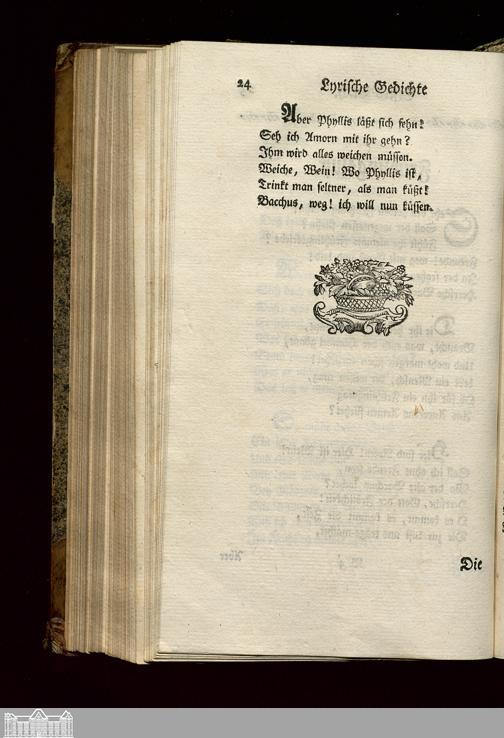 24 Lyrische Gedichte
Aber Phyllis läßt sich sehn!
Seh ich Amorn mit ihr gehn?
Ihm wird alles weichen müssen.
Weiche, Wein! Wo Phyllis ist,
Trinkt man seltner, als man küßt!
Bacchus, weg! ich will nun küssen.
Die